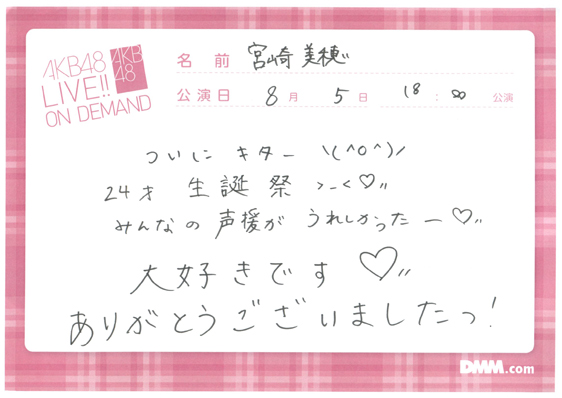 AKB48
LIVE!!
ON DEMAND
AKB
48
名前 宮崎美穂
公演日 8月5日 18:00 公演
ついにキター \(^o^)/
24才 生誕祭 >_<♡〃
みんなの声援がうれしかったー♡〃
大好きです♡〃
ありがとうございましたっ!
DMM.com